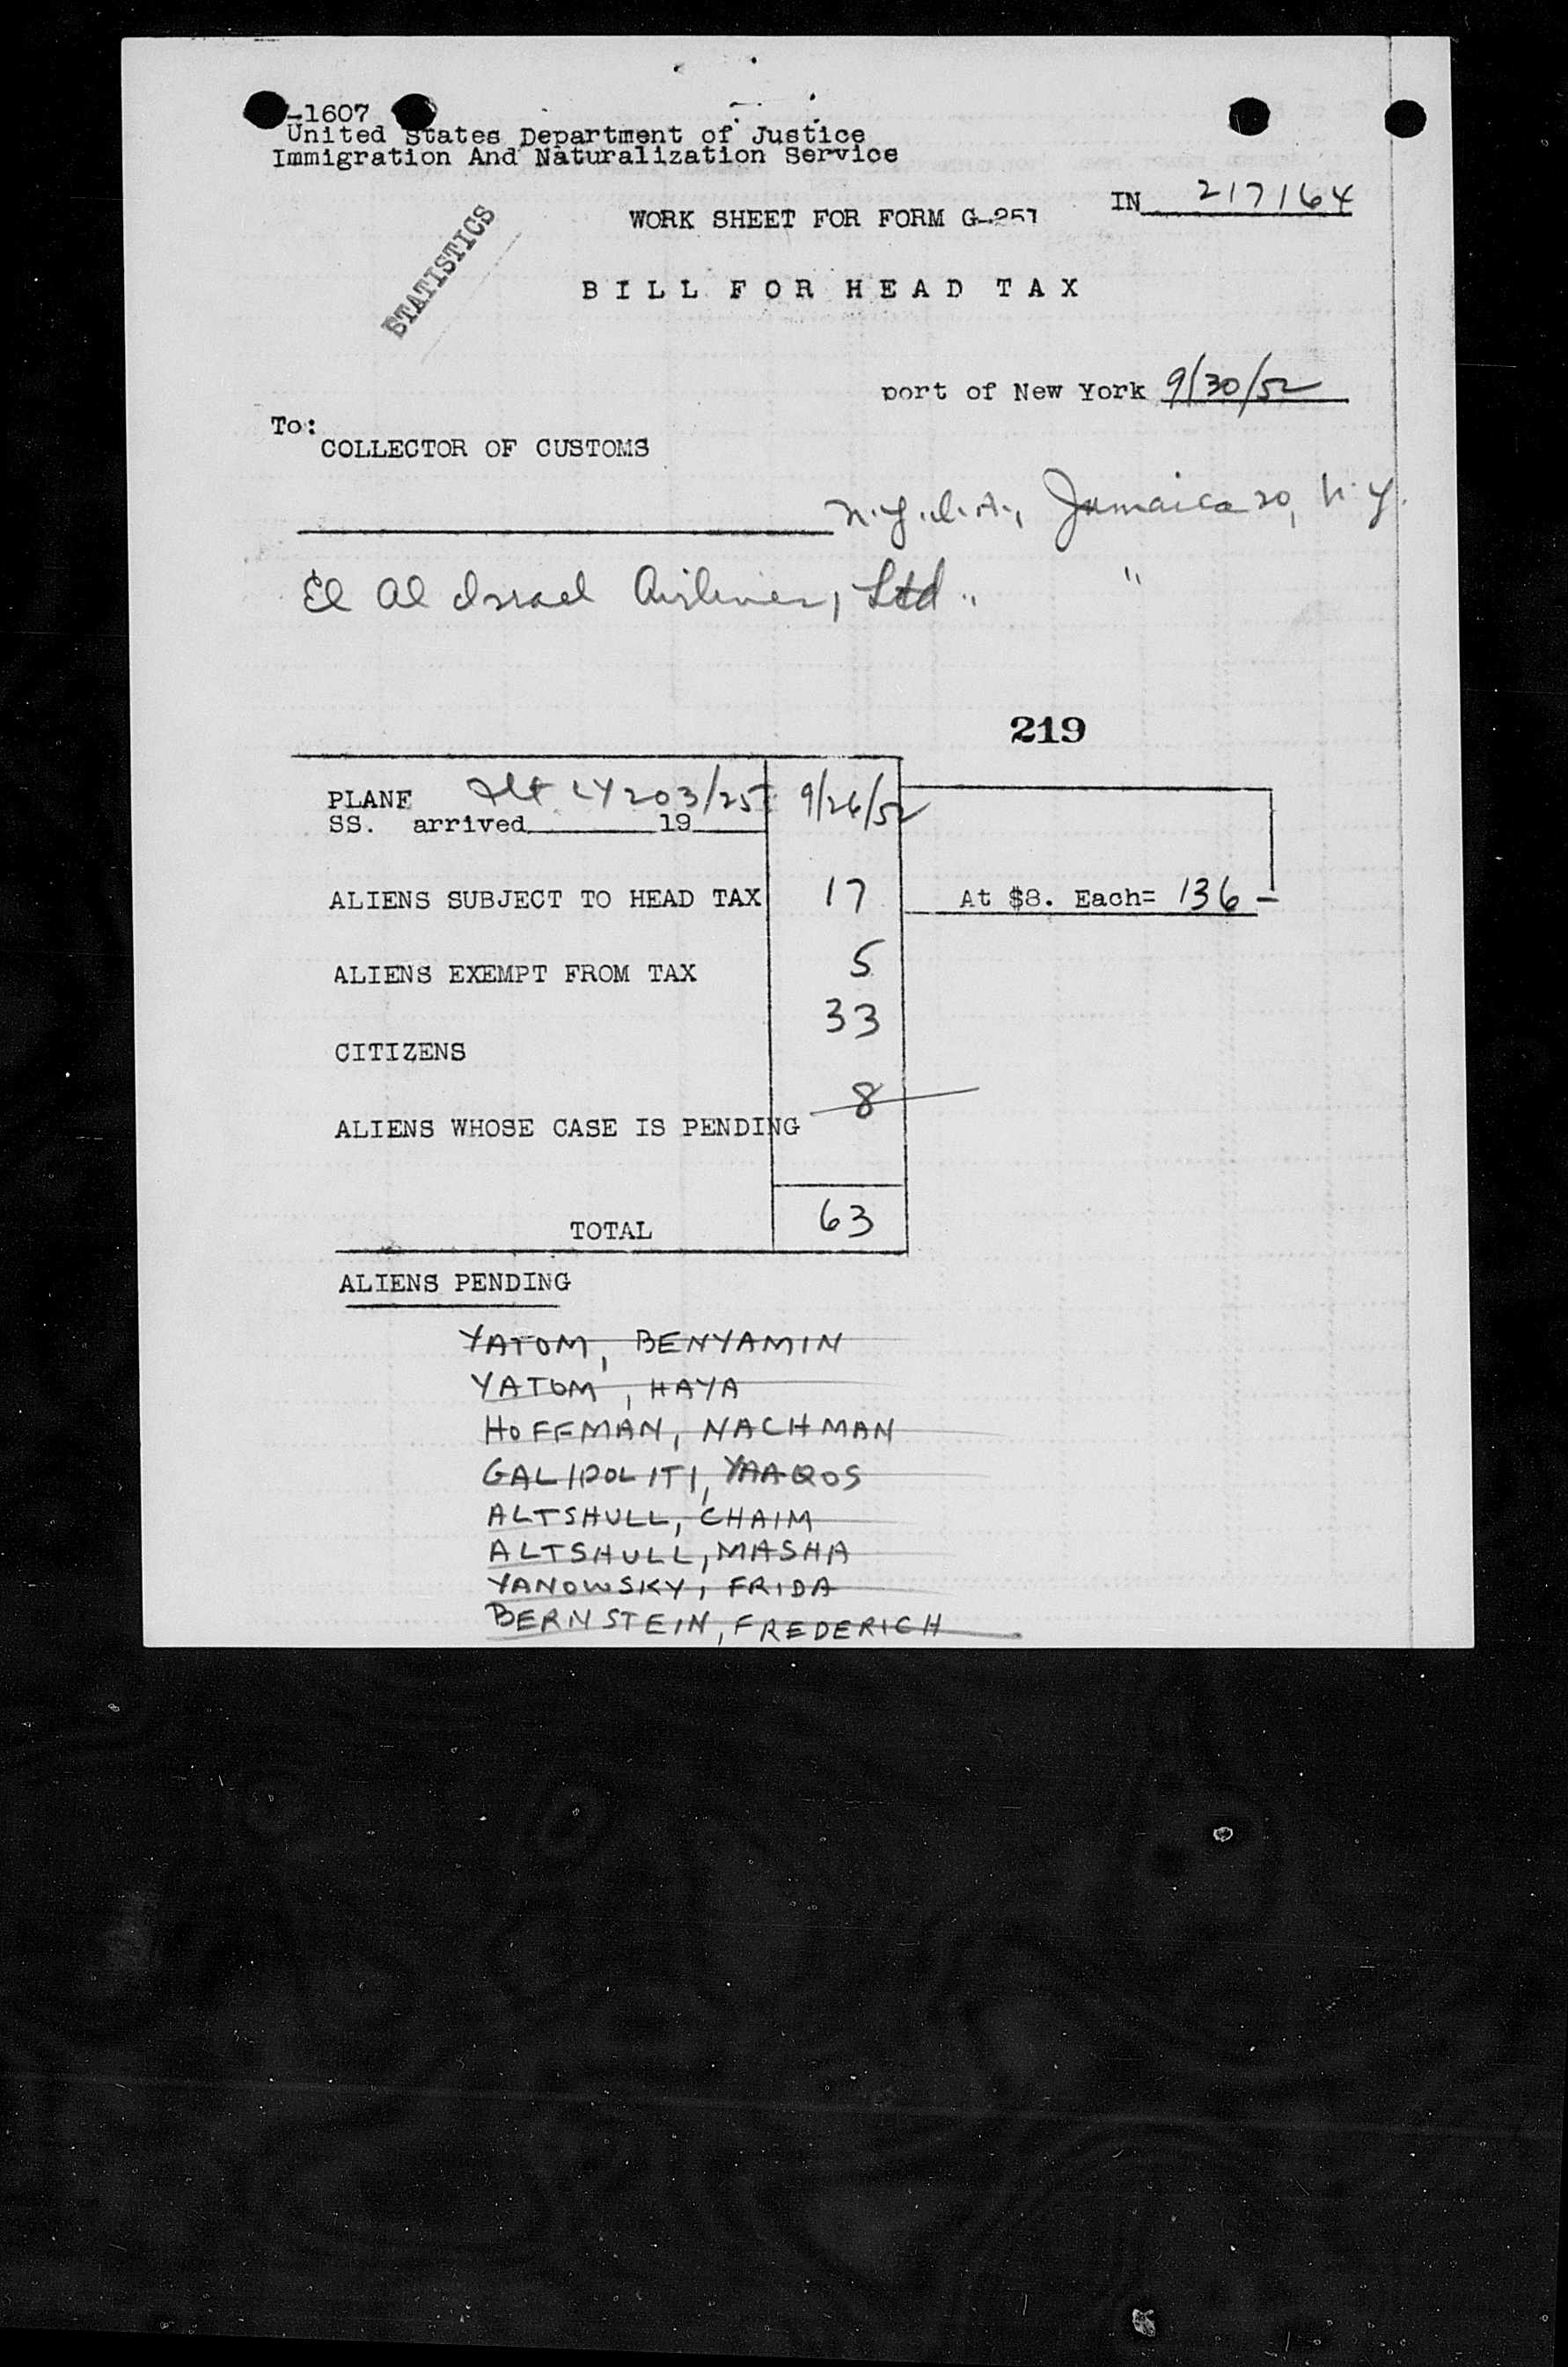 -1607
United States Department of Justice
Immigration And Naturalization Service
IN 217164
WORK SHEET FOR FORM G-251
STATISTICS
BILL FOR HEAD TAX
port of New York 9/30/52
To:
COLLECTOR OF CUSTOMS
N.Y.I.A., Jamaica 20, N.Y.
El Al Israel Airlines, Ltd. "
219
PLANE Flt LY 203/25 9/26/52
SS. arrived 19
ALIENS SUBJECT TO HEAD TAX 17 At $8. Each= 136 -
ALIENS EXEMPT FROM TAX 5
CITIZENS 33
ALIENS WHOSE CASE IS PENDING 8
TOTAL 63
ALIENS PENDING
YATOM, BENYAMIN
YATOM, HAYA
HOFFMAN, NACHMAN
GALIPOLITI, YAAQOS
ALTSHULL, CHAIM
ALTSHULL, MASHA
YANOWSKY, FRIDA
BERNSTEIN, FREDERICH